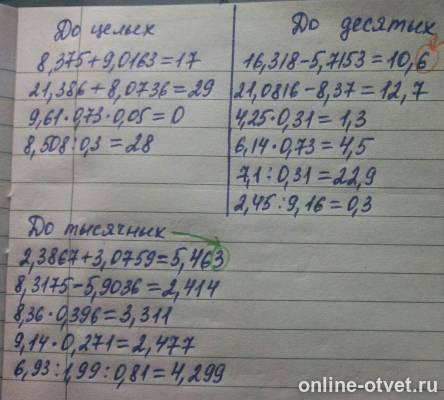 До целых
8,375+9,0163=17
21,386+8,0736=29
9,61·0,73·0,05=0
8,508:0,3=28
До десятых
16,318-5,7153=10,6
21,0816-8,37=12,7
4,25·0,31=1,3
6,14·0,73=4,5
7,1:0,31=22,9
2,45:9,16=0,3
До тысячных
2,3867+3,0759=5,463
8,3175-5,9036=2,414
8,36·0,396=3,311
9,14·0,271=2,477
6,93:1,99:0,81=4,299
online-otvet.ru